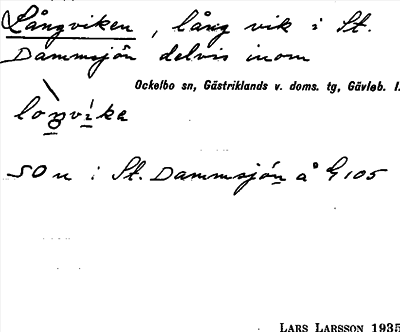 Långviken, lång vik i St.
Dammsjön delvis inom
Ockelbo sn, Gästriklands v. doms. tg, Gävleb. l.
loŋvika
SO n i St. Dammsjön å G 105
LARS LARSSON 1935